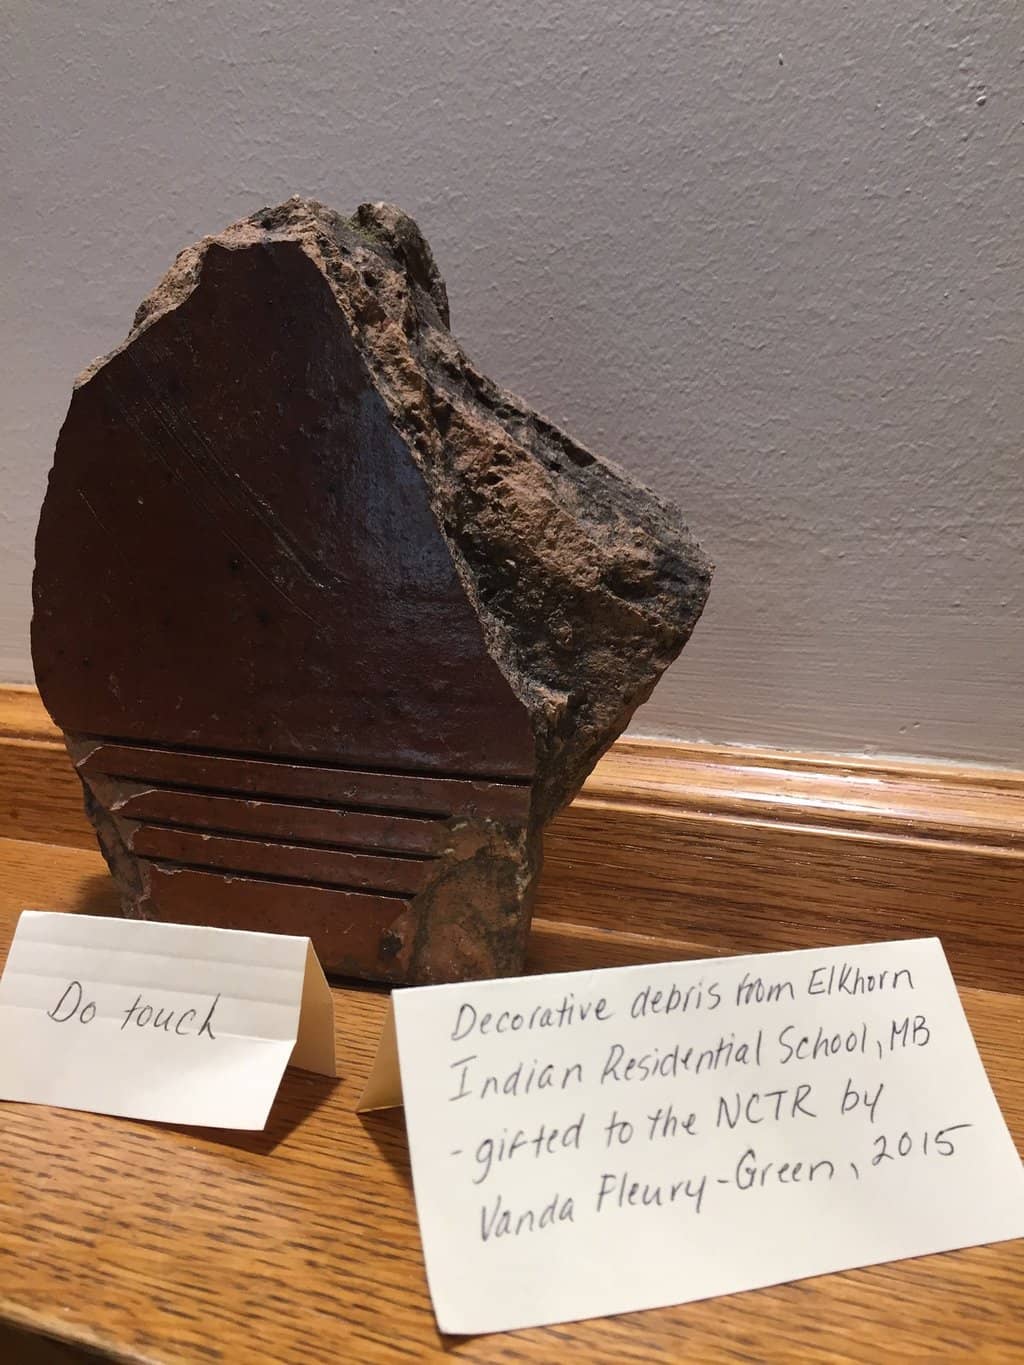 Do touch
Decorative debris from Elkhorn
Indian Residential School, MB
- gifted to the NCTR by
Vanda Fleury-Green, 2015